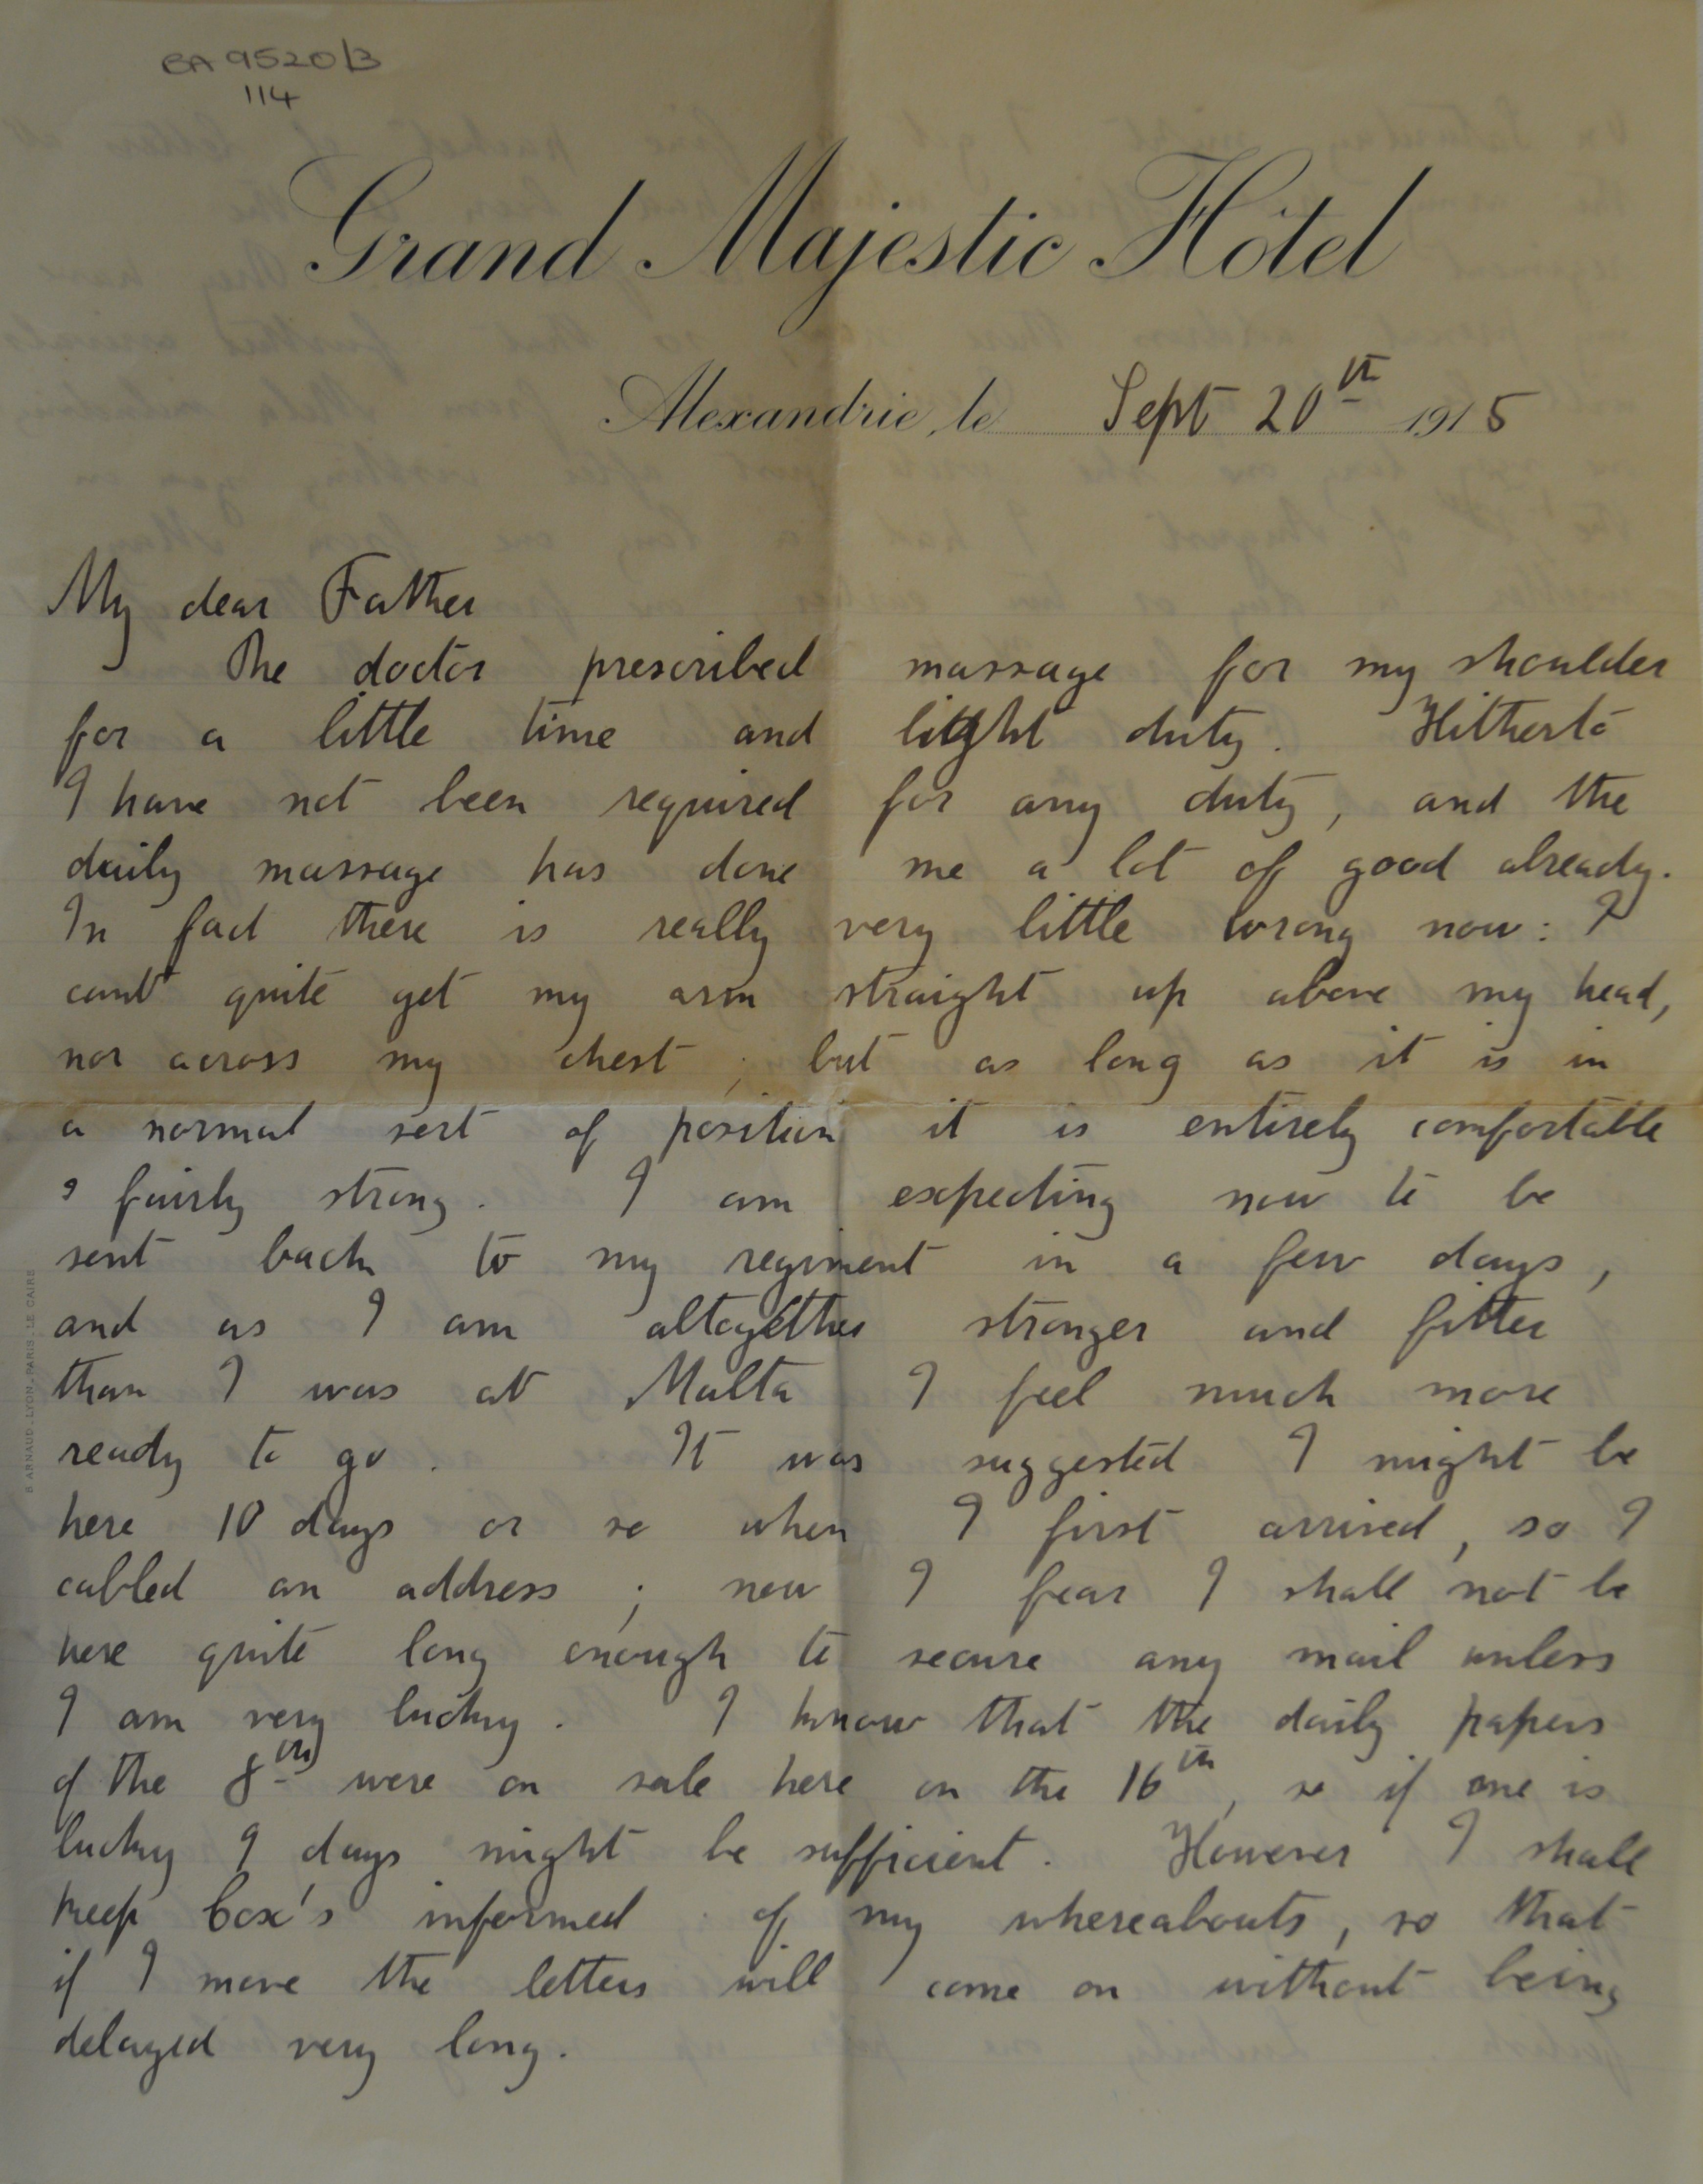 BA 9520/3
114
Grand Majestic Hôtel
Alexandrie, le Sept 20th 1915
My dear Father
The doctor prescribed massage for my shoulder
for a little time and light duty. Hitherto
I have not been required for any duty, and the
daily massage has done me a lot of good already.
In fact there is really very little wrong now: I
can't quite get my arm straight up above my head,
nor across my chest; but as long as it is in
a normal sort of position it is entirely comfortable
& fairly strong. I am expecting now to be
sent back to my regiment in a few days,
and as I am altogether stronger and fitter
than I was at Malta I feel much more
ready to go. It was suggested I might be
here 10 days or so when I first arrived, so I
cabled an address; now I fear I shall not be
here quite long enough to secure any mail unless
I am very lucky. I know that the daily papers
of the 8th were on sale here on the 16th, so if one is
lucky 9 days might be sufficient. However I shall
keep Cox's informed of my whereabouts, so that
if I move the letters will come on without being
delayed very long.
B. ARNAUD. LYON. PARIS. LE CAIRE